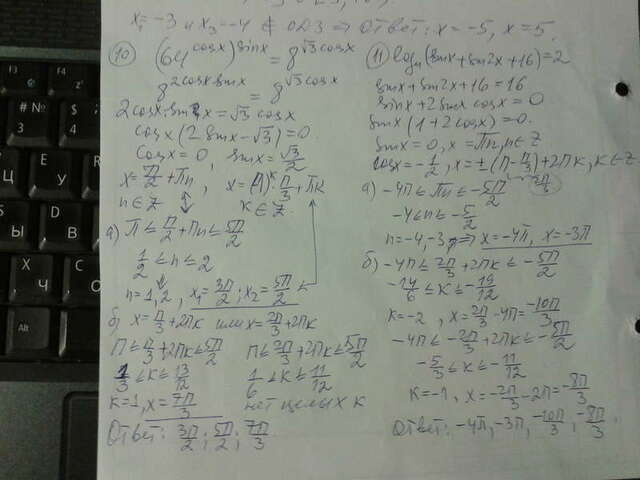 x₁ = -3 и x₃ = -4 ∉ ОДЗ ⇒ Ответ: x = -5, x = 5.
⑩ (64^cosx)^sinx = 8^√3 cosx
8^2cosx sinx = 8^√3 cosx
2cosx·sinx = √3 cosx
cosx(2sinx - √3) = 0
cosx = 0, sinx = √3/2
x = π/2 + πn, x = (-1)^k · π/3 + πk
n ∈ Z k ∈ Z
а) π ≤ π/2 + πn ≤ 5π/2
1/2 ≤ n ≤ 2
n = 1, 2, x₁ = 3π/2; x₂ = 5π/2
б) x = π/3 + 2πk или x = 2π/3 + 2πk
π ≤ π/3 + 2πk ≤ 5π/2 π ≤ 2π/3 + 2πk ≤ 5π/2
1/3 ≤ k ≤ 13/12 1/6 ≤ k ≤ 11/12
k = 1, x = 7π/3 нет целых k
Ответ: 3π/2; 5π/2; 7π/3
⑪ log₄(sinx + sin2x + 16) = 2
sinx + sin2x + 16 = 16
sinx + 2sinx cosx = 0
sinx(1 + 2cosx) = 0.
sinx = 0, x = πn, n ∈ Z
cosx = -1/2, x = ±(π - π/3) + 2πk, k ∈ Z
2π/3
а) -4π ≤ πn ≤ -5π/2
-4 ≤ n ≤ -5/2
n = -4, -3, ⇒ x = -4π, x = -3π
б) -4π ≤ 2π/3 + 2πk ≤ -5π/2
-14/6 ≤ k ≤ -19/12
k = -2, x = 2π/3 - 4π = -10π/3
-4π ≤ -2π/3 + 2πk ≤ -5π/2
-5/3 ≤ k ≤ -11/12
k = -1, x = -2π/3 - 2π = -8π/3
Ответ: -4π, -3π, -10π/3, -8π/3.
F3
F4
№
3
;
4
Ц
У
Ы
В
Ч
С
Alt